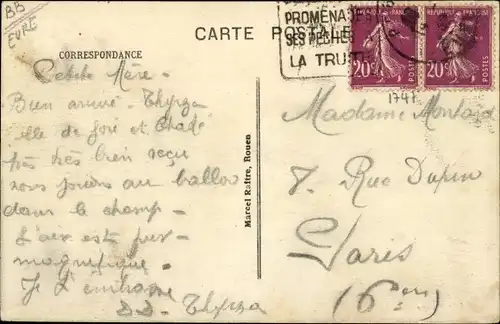 BB
EURE
CARTE POSTALE
PROMENADE
SES PÊCHE
LA TRUI
20c POSTES
20c POSTES
1741
CORRESPONDANCE
Petite Mère -
Bien arrivé - Thyrza
elle de joie et
très très bien reçu
nous jouons au ballon
dans le champ -
L'air est pur -
magnifique -
Je t'embrasse
DD - Thyrza
Marcel Raffre, Rouen
Madame
8. Rue Dupin
Paris
(6em)